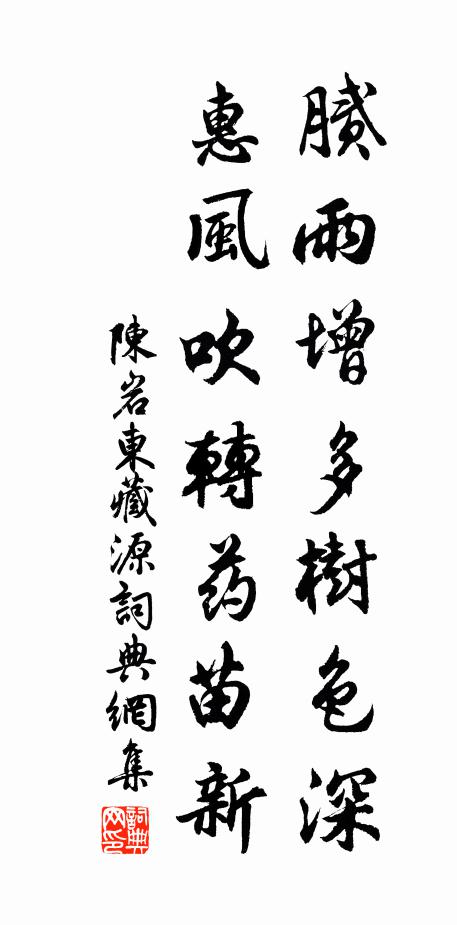 膩雨增多樹色深
惠風吹轉药苗新
陳岩東藏源詞典網集
詞典
网印